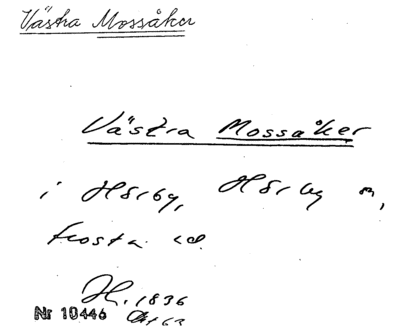 Västra Mossåker
Västra Mossåker
i Hörby, Hörby sn,
Frosta hd.
H. 1836
Nr 10446